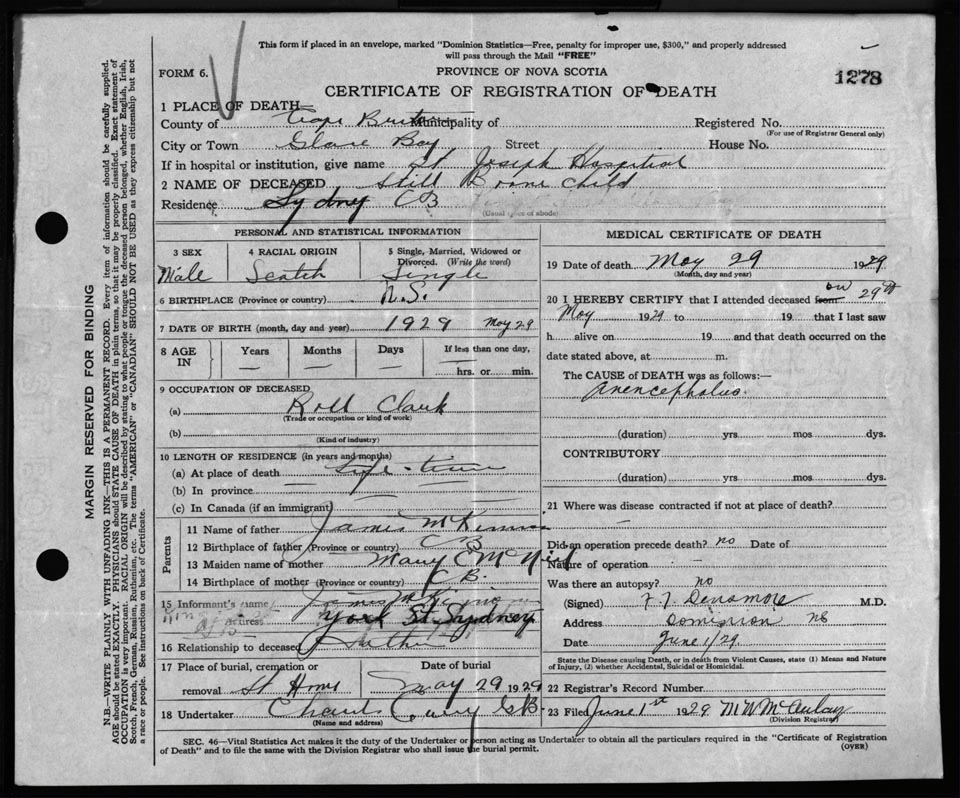 This form if placed in an envelope, marked "Dominion Statistics—Free, penalty for improper use, $300," and properly addressed
will pass through the Mail "FREE"
FORM 6.
PROVINCE OF NOVA SCOTIA
1278
CERTIFICATE OF REGISTRATION OF DEATH
1 PLACE OF DEATH—
County of Cape Breton Municipality of Registered No.
(For use of Registrar General only)
City or Town Glace Bay Street House No.
If in hospital or institution, give name St. Joseph Hospital
2 NAME OF DECEASED Still Borne Child
Residence Sydney CB
(Usual place of abode)
PERSONAL AND STATISTICAL INFORMATION
3 SEX
Male
4 RACIAL ORIGIN
Scotch
5 Single, Married, Widowed or
Divorced. (Write the word)
Single
6 BIRTHPLACE (Province or country) N.S.
7 DATE OF BIRTH (month, day and year) 1929 May 29
8 AGE IN
Years
Months
Days
If less than one day,
hrs. or min.
9 OCCUPATION OF DECEASED
(a) Roll Clark
(Trade or occupation or kind of work)
(b)
(Kind of industry)
10 LENGTH OF RESIDENCE (in years and months)
(a) At place of death
(b) In province
(c) In Canada (if an immigrant)
Parents
11 Name of father James
12 Birthplace of father (Province or country) C B
13 Maiden name of mother Mary
14 Birthplace of mother (Province or country) C B.
15 Informant's name James
Address York St. Sydney
16 Relationship to deceased Father
17 Place of burial, cremation or
removal
Date of burial
May 29 1929
18 Undertaker Curry G.B.
(Name and address)
MEDICAL CERTIFICATE OF DEATH
19 Date of death May 29 1929
(Month, day and year)
20 I HEREBY CERTIFY that I attended deceased from on 29th
May 1929 to 19 that I last saw
h alive on 19 and that death occurred on the
date stated above, at m.
The CAUSE of DEATH was as follows:—
Anencephalus.
(duration) yrs mos dys.
CONTRIBUTORY
(duration) yrs. mos. dys.
21 Where was disease contracted if not at place of death?
Did an operation precede death? no Date of
Nature of operation
Was there an autopsy? no
(Signed) M.D.
Address Dominion NS
Date June 1/29.
State the Disease causing Death, or in death from Violent Causes, state (1) Means and Nature
of Injury, (2) whether Accidental, Suicidal or Homicidal.
22 Registrar's Record Number
23 Filed June 1st 1929 M W McAulay
(Division Registrar)
SEC. 46—Vital Statistics Act makes it the duty of the Undertaker or person acting as Undertaker to obtain all the particulars required in the "Certificate of Registration
of Death" and to file the same with the Division Registrar who shall issue the burial permit.
(OVER)
MARGIN RESERVED FOR BINDING
N.B.—WRITE PLAINLY WITH UNFADING INK—THIS IS A PERMANENT RECORD. Every item of information should be carefully supplied.
AGE should be stated EXACTLY. PHYSICIANS should STATE CAUSE OF DEATH in plain terms, so that it may be properly classified. Exact statement of
OCCUPATION is very important. RACIAL ORIGIN will be described by stating to what people or tongue the deceased person belonged, whether English, Irish,
Scotch, French, German, Russian, Ruthenian, etc. The terms "AMERICAN" or "CANADIAN" SHOULD NOT BE USED as they express citizenship but not
a race or people. See instructions on back of Certificate.